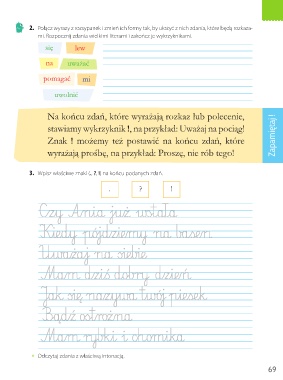 2. Połącz wyrazy z rozsypanek i zmień ich formy tak, by ułożyć z nich zdania, które będą rozkaza-
mi. Rozpocznij zdania wielkimi literami i zakończ je wykrzyknikami.
się lew
na uważać
pomagać mi
uwolnić
Na końcu zdań, które wyrażają rozkaz lub polecenie,
stawiamy wykrzyknik !, na przykład: Uważaj na pociąg!
Znak ! możemy też postawić na końcu zdań, które
wyrażają prośbę, na przykład: Proszę, nie rób tego!
Zapamiętaj!
3. Wpisz właściwe znaki (., ?, !) na końcu podanych zdań.
. ? !
Czy Ania już wstała
Kiedy pójdziemy na basen
Uważaj na siebie
Mam dziś dobry dzień
Jak się nazywa twój piesek
Bądź ostrożna
Mam rybki i chomika
• Odczytaj zdania z właściwą intonacją.
69